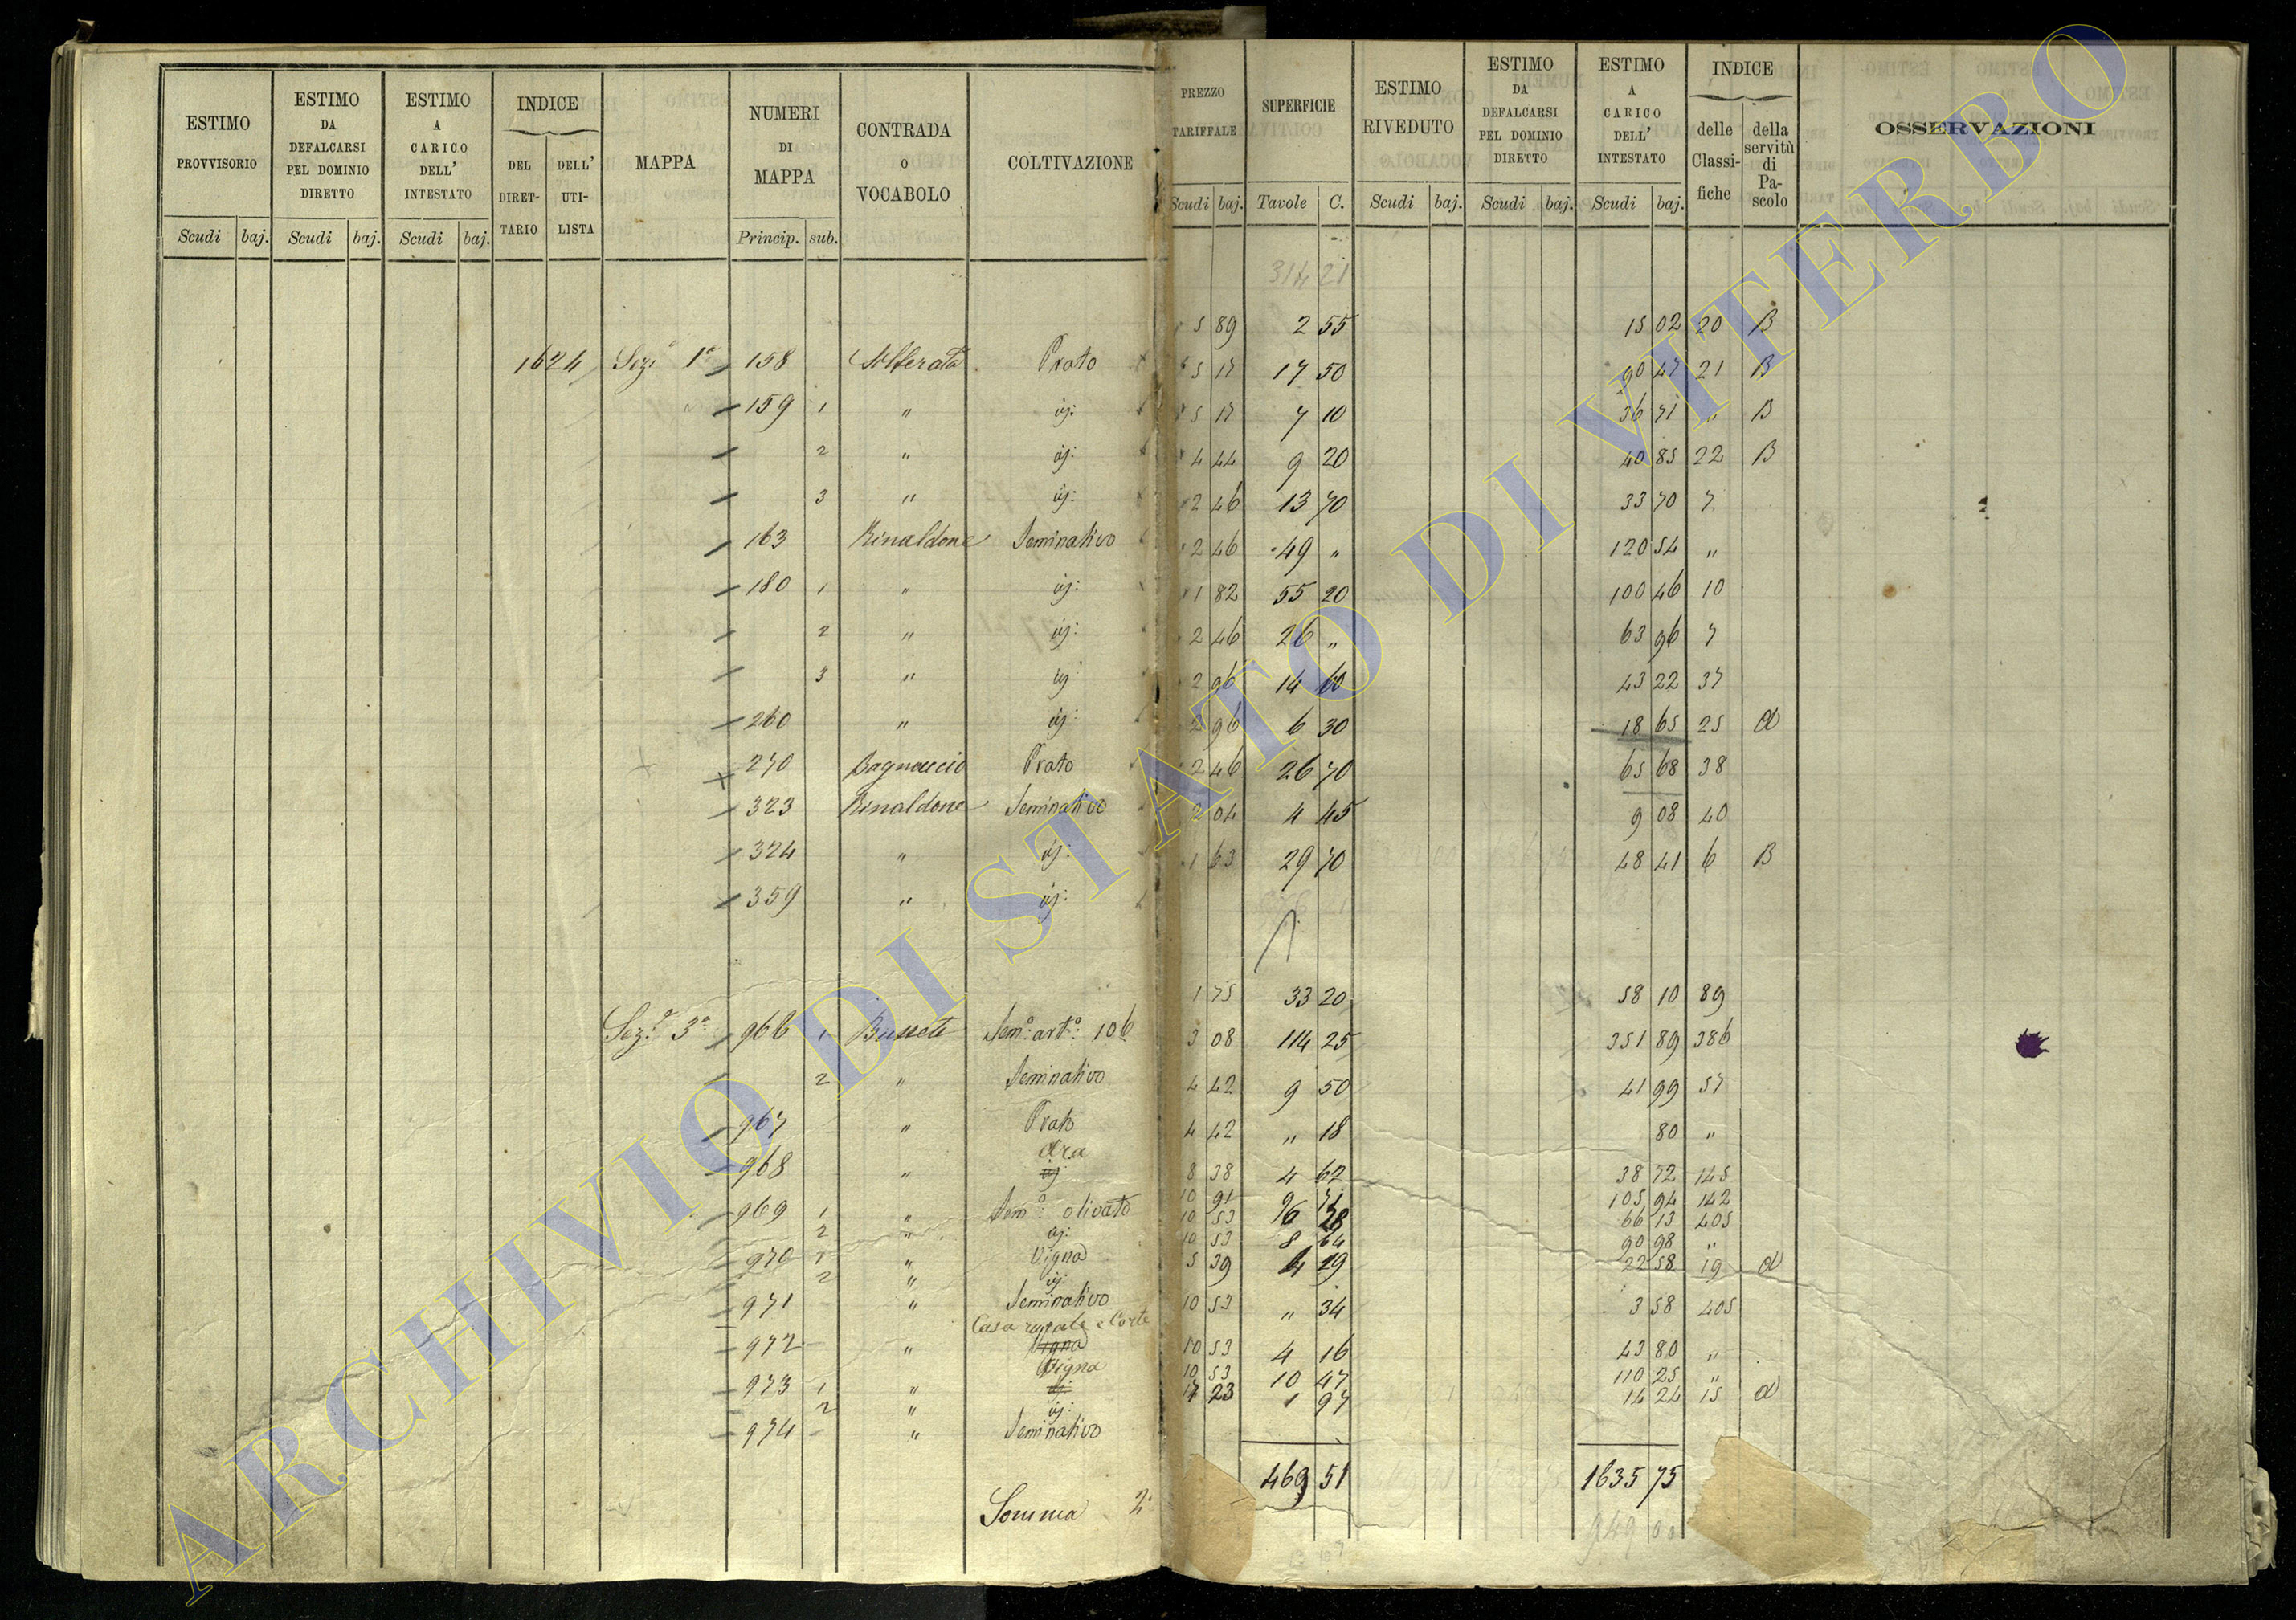 ESTIMO PROVVISORIO
Scudi baj.
ESTIMO DA DEFALCARSI PEL DOMINIO DIRETTO
Scudi baj.
ESTIMO A CARICO DELL' INTESTATO
Scudi baj.
INDICE
DEL DIRET-TARIO
DELL' UTI-LISTA
MAPPA
NUMERI DI MAPPA
Princip. sub.
CONTRADA O VOCABOLO
COLTIVAZIONE
PREZZO TARIFFALE
Scudi baj.
SUPERFICIE
Tavole C.
ESTIMO RIVEDUTO
Scudi baj.
ESTIMO DA DEFALCARSI PEL DOMINIO DIRETTO
Scudi baj.
ESTIMO A CARICO DELL' INTESTATO
Scudi baj.
INDICE
delle Classi-fiche
della servitù di Pa-scolo
OSSERVAZIONI
314 21
1624 Sez.e 1a 158 Alberata Prato 5 89 2 55 15 02 20 B
159 1 " id: 5 17 17 50 90 47 21 B
2 " id: 5 17 7 10 36 71 " B
3 " id: 4 44 9 20 40 85 22 B
163 Rinaldone Seminativo 2 46 13 70 33 70 7
180 1 " id: 2 46 49 " 120 54 "
2 " id: 1 82 55 20 100 46 10
3 " id 2 46 26 " 63 96 7
260 " id: 2 96 14 60 43 22 37
270 Bagnaccio Prato 2 96 6 30 18 65 25 A
323 Rinaldone Seminativo 2 46 26 70 65 68 38
324 " id: 2 04 4 45 9 08 40
359 " id: 1 63 29 70 48 41 6 B
Sez.e 3a 966 1 Bussete Sem.o art.o 106 1 75 33 20 58 10 89
2 " Seminativo 3 08 114 25 351 89 386
967 " Prato 4 42 9 50 41 99 57
968 " id Ara 4 42 " 18 80 "
969 1 " Sem.o olivato 8 38 4 62 38 72 145
2 " id: 10 91 9 71 105 94 142
970 1 " Vigna 10 53 6 28 66 13 405
2 " id: 10 53 8 64 90 98 "
971 " Seminativo 5 39 4 19 22 58 19 A
972 " Vigna Casa rurale e Corte 10 53 " 34 3 58 405
973 1 " id: Vigna 10 53 4 16 43 80 "
2 " id: 10 53 10 47 110 25 "
974 " Seminativo 7 23 1 97 14 24 15 A
Somma 2a 469 51 1635 75
949 00
ARCHIVIO DI STATO DI VITERBO